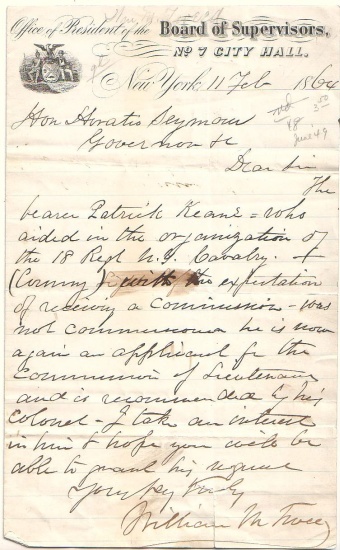 Office of President of the Board of Supervisors,
No 7 CITY HALL.
New York 11 Feb 1864
Hon Horatio Seymour
Governor &c
Dear Sir
The
bearer Patrick Keane = who
aided in the organization of
the 18 Regt N.Y. Cavalry. +
(Corning) with the expectation
of receiving a Commission - was
not commissioned he is now
again an applicant for the
Commission of Lieutenant
and is recommended by his
Colonel - I take an interest
in him & hope you will be
able to grant his request
Your truly
William M Tweed
June 49